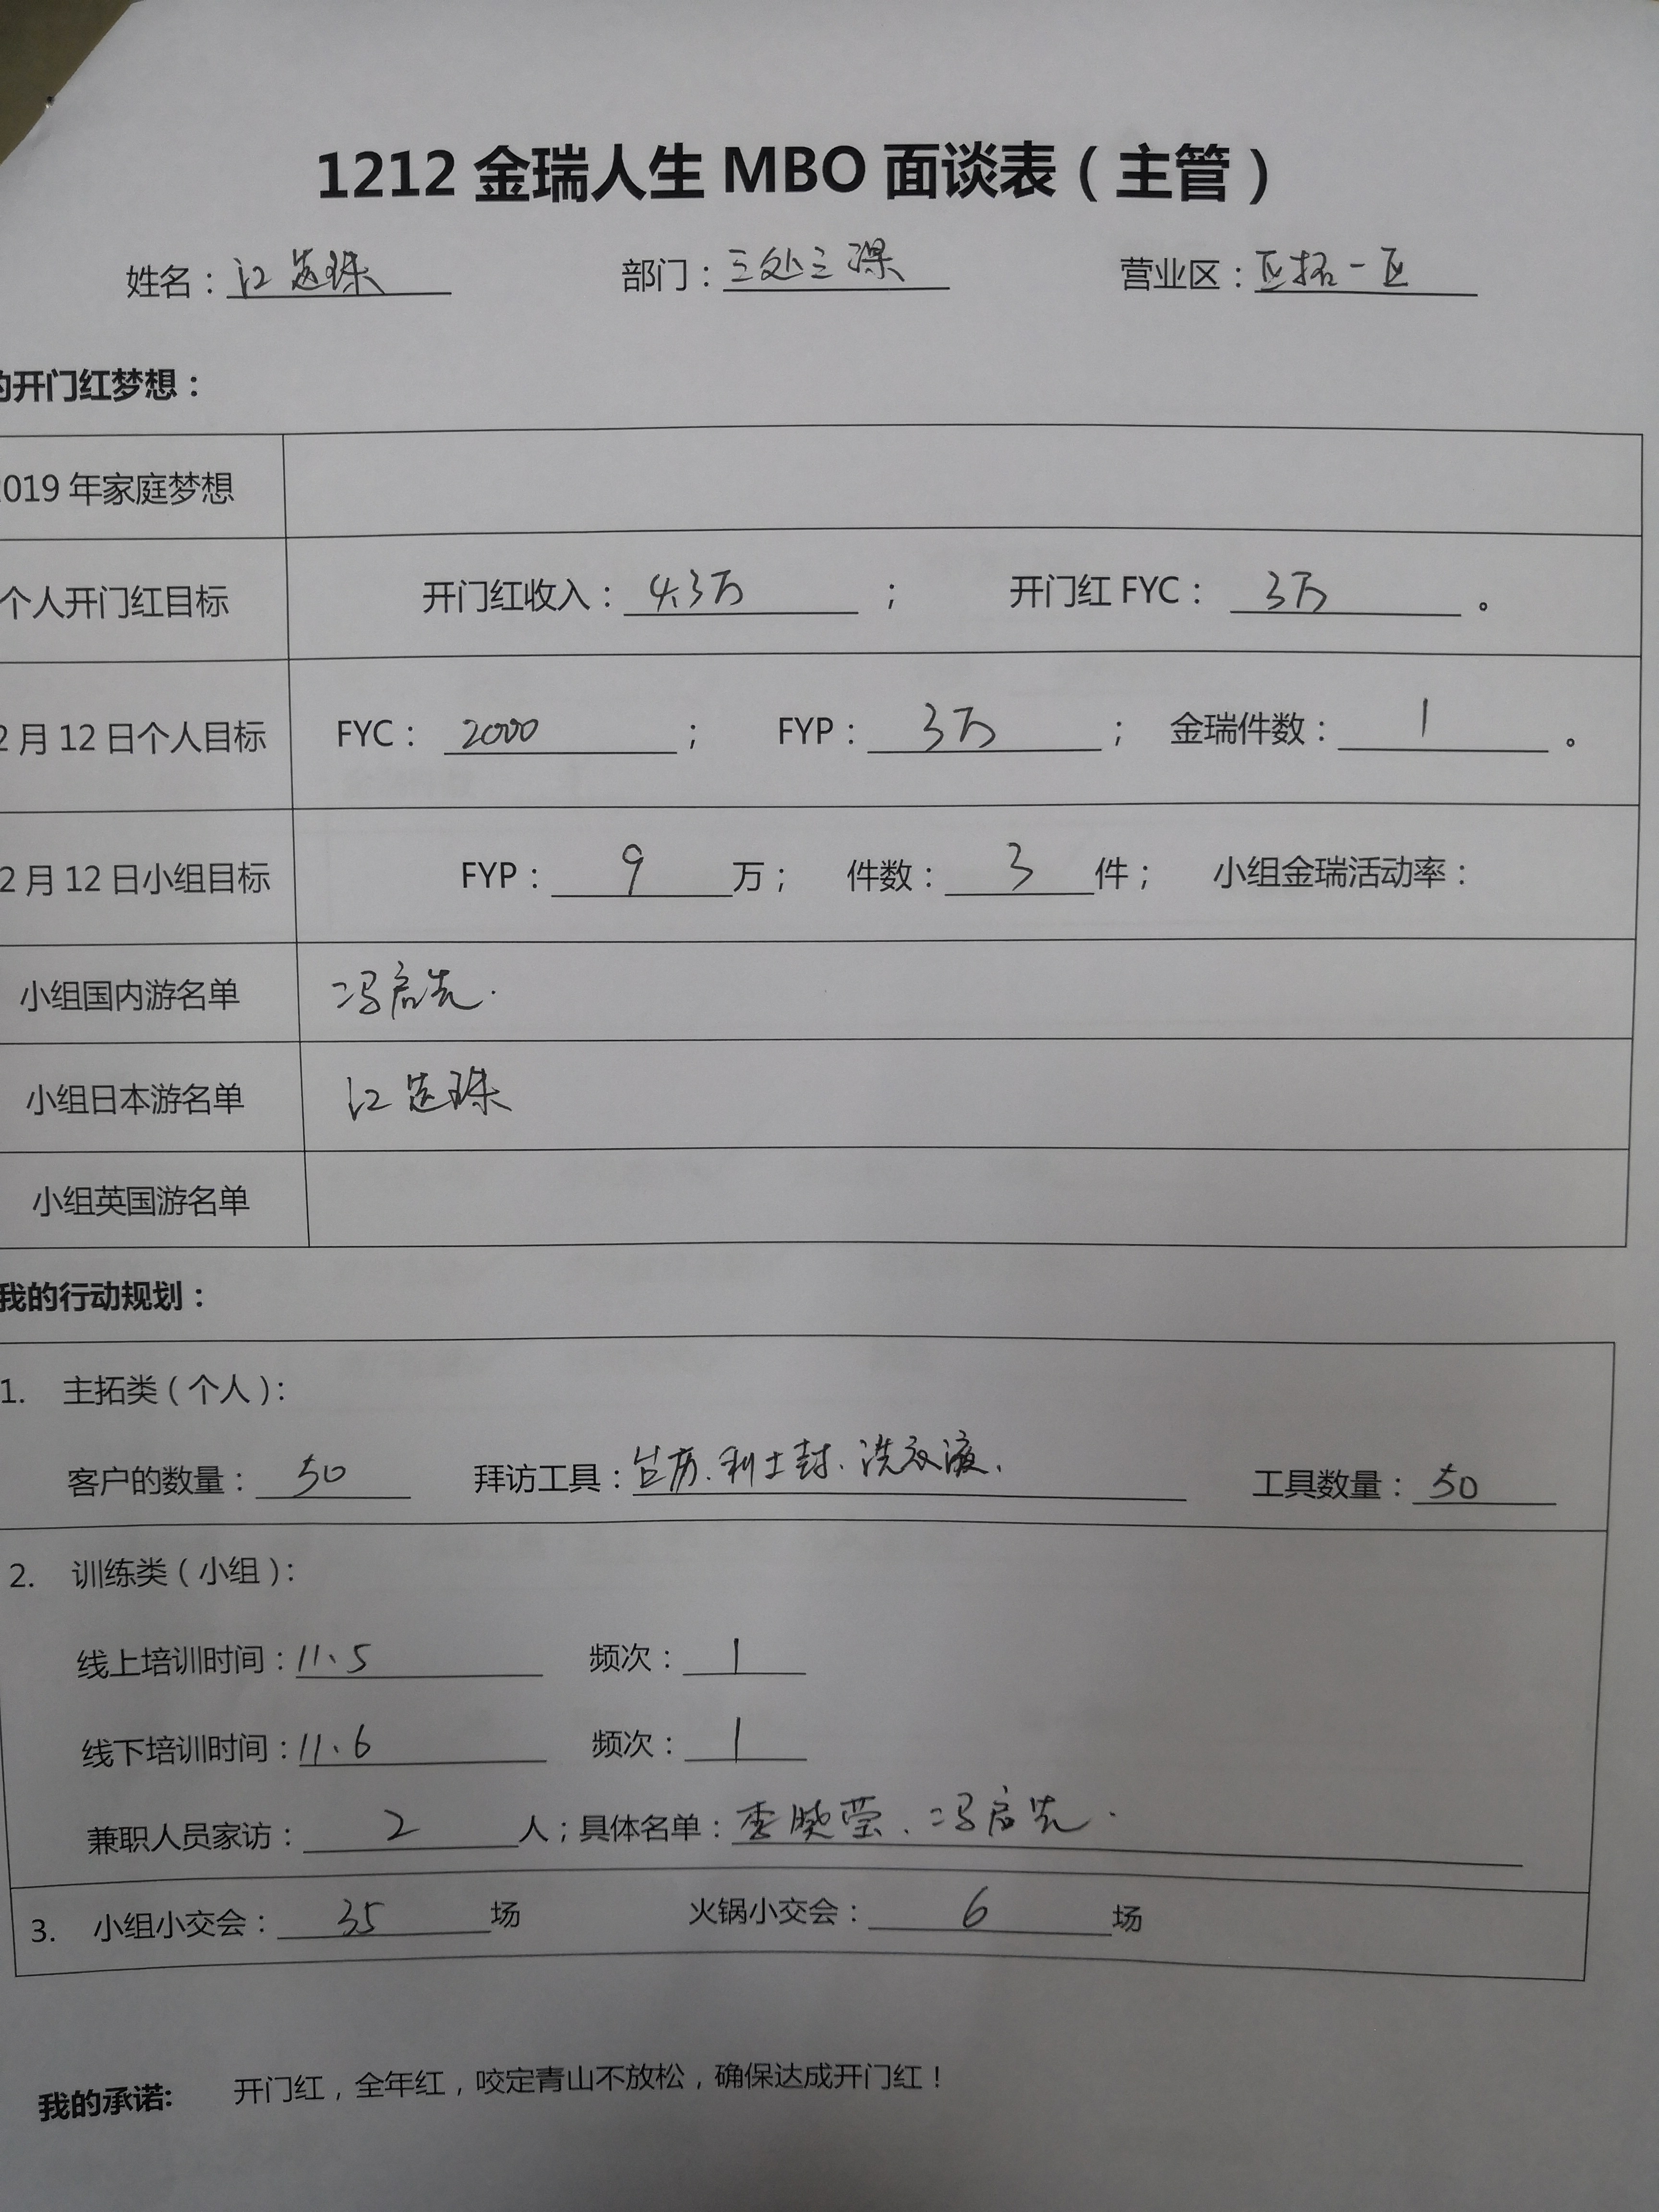 1212 金瑞人生 MBO 面谈表（主管）
姓名：江选珠 部门：三处三课 营业区：区拓一区
的开门红梦想：
2019 年家庭梦想
个人开门红目标 开门红收入：4.3万； 开门红 FYC：3万。
2 月 12 日个人目标 FYC：2000； FYP：3万； 金瑞件数：1。
2 月 12 日小组目标 FYP：9万； 件数：3件； 小组金瑞活动率：
小组国内游名单 冯启先.
小组日本游名单 江选珠
小组英国游名单
我的行动规划：
1. 主拓类（个人）：
客户的数量：50 拜访工具：台历、利士封、洗衣液、 工具数量：50
2. 训练类（小组）：
线上培训时间：11、5 频次：1
线下培训时间：11、6 频次：1
兼职人员家访：2人；具体名单：李晓莹、冯启先.
3. 小组小交会：35场 火锅小交会：6场
我的承诺: 开门红，全年红，咬定青山不放松，确保达成开门红！